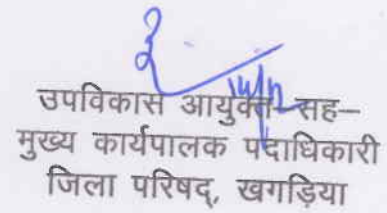 उपविकास आयुक्त–सह–
मुख्य कार्यपालक पदाधिकारी
जिला परिषद्, खगड़िया